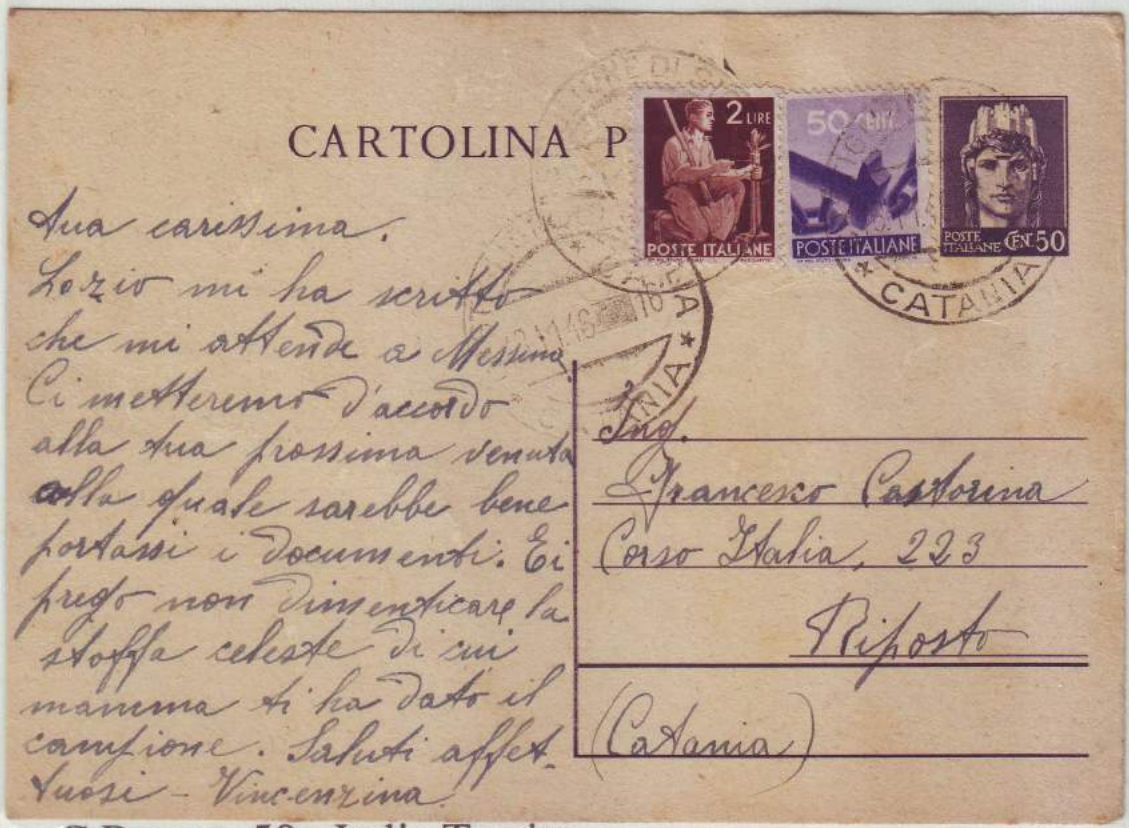 CARTOLINA P
2 LIRE
POSTE ITALIANE
50 CENT.
POSTE ITALIANE
POSTE ITALIANE CENT. 50
* CATANIA
16
tua carissima.
Lo zio mi ha scritto
che mi attende a Messina
Ci metteremo d'accordo
alla tua prossima venuta
alla quale sarebbe bene
portassi i documenti. Ti
prego non dimenticare la
stoffa celeste di cui
mamma ti ha dato il
campione. Saluti affet-
tuosi - Vincenzina
Ing.
Francesco Castorina
Corso Italia, 223
Riposto
(Catania)